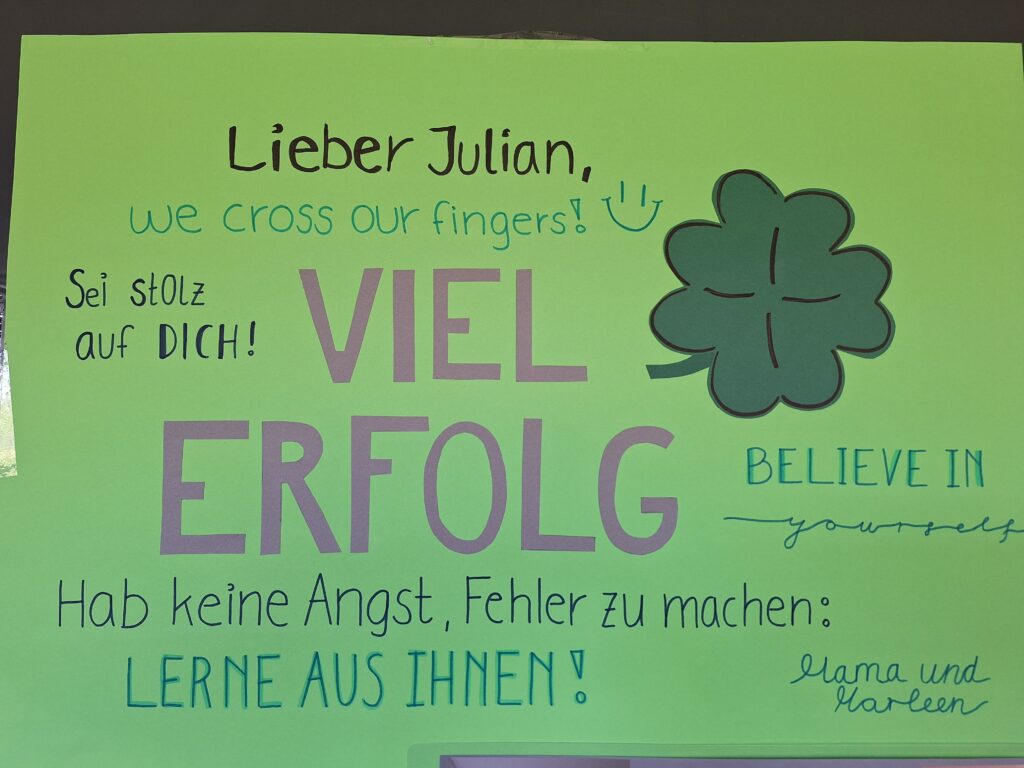 Lieber Julian,
we cross our fingers!
Sei stolz
auf DICH!
VIEL
ERFOLG
BELIEVE IN
yourself
Hab keine Angst, Fehler zu machen:
LERNE AUS IHNEN!
Mama und
Marleen